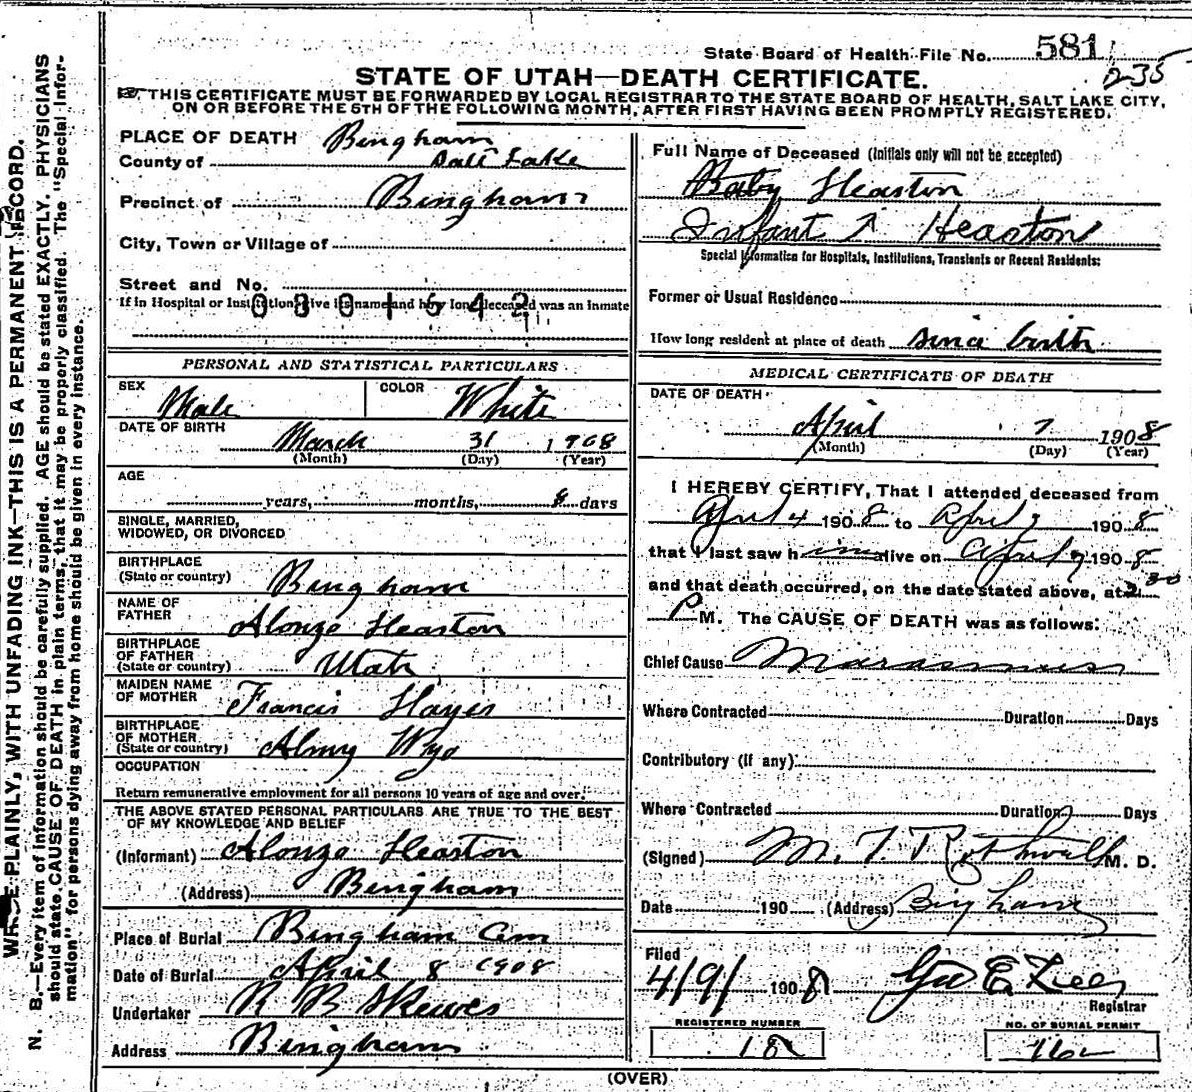 State Board of Health File No. 581
235
STATE OF UTAH—DEATH CERTIFICATE.
THIS CERTIFICATE MUST BE FORWARDED BY LOCAL REGISTRAR TO THE STATE BOARD OF HEALTH, SALT LAKE CITY,
ON OR BEFORE THE 5TH OF THE FOLLOWING MONTH, AFTER FIRST HAVING BEEN PROMPTLY REGISTERED.
PLACE OF DEATH Bingham
County of Salt Lake
Precinct of Bingham
City, Town or Village of
Street and No.
If in Hospital or Institution give its name and how long deceased was an inmate
0801642
PERSONAL AND STATISTICAL PARTICULARS
SEX Male COLOR White
DATE OF BIRTH March 31 1908
(Month) (Day) (Year)
AGE
years, months, 8 days
SINGLE, MARRIED,
WIDOWED, OR DIVORCED
BIRTHPLACE
(State or country) Bingham
NAME OF
FATHER Alonzo Heaston
BIRTHPLACE
OF FATHER
(State or country) Utah
MAIDEN NAME
OF MOTHER Francis Hayes
BIRTHPLACE
OF MOTHER
(State or country) Almy Wyo
OCCUPATION
Return remunerative employment for all persons 10 years of age and over.
THE ABOVE STATED PERSONAL PARTICULARS ARE TRUE TO THE BEST
OF MY KNOWLEDGE AND BELIEF
(Informant) Alonzo Heaston
(Address) Bingham
Place of Burial Bingham Cem
Date of Burial April 8 1908
Undertaker R B Skewes
Address Bingham
Full Name of Deceased (Initials only will not be accepted)
Baby Heaston
Infant Heaston
Special Information for Hospitals, Institutions, Transients or Recent Residents:
Former or Usual Residence
How long resident at place of death since birth
MEDICAL CERTIFICATE OF DEATH
DATE OF DEATH
April 7 1908
(Month) (Day) (Year)
I HEREBY CERTIFY, That I attended deceased from
April 4 1908 to April 7 1908
that I last saw him alive on April 7 1908
and that death occurred, on the date stated above, at 2.30
P M. The CAUSE OF DEATH was as follows:
Chief Cause Marasmus
Where Contracted Duration Days
Contributory (if any)
Where Contracted Duration Days
(Signed) M. F. Rothwell M. D.
Date 190 (Address) Bingham
Filed
4/9/ 1908 Geo E. Lee
Registrar
REGISTERED NUMBER
18
NO. OF BURIAL PERMIT
(OVER)
WRITE PLAINLY, WITH UNFADING INK—THIS IS A PERMANENT RECORD.
N. B.—Every item of information should be carefully supplied. AGE should be stated EXACTLY. PHYSICIANS
should state CAUSE OF DEATH in plain terms, that it may be properly classified. The "Special Infor-
mation" for persons dying away from home should be given in every instance.